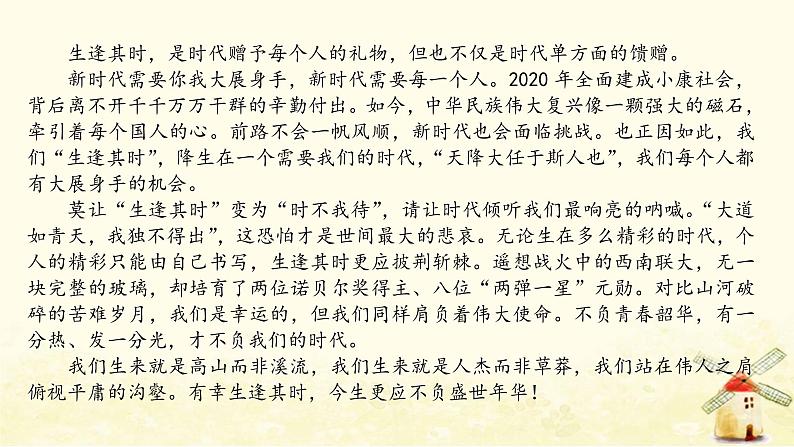 生逢其时，是时代赠予每个人的礼物，但也不仅是时代单方面的馈赠。
新时代需要你我大展身手，新时代需要每一个人。2020 年全面建成小康社会，
背后离不开千千万万干群的辛勤付出。如今，中华民族伟大复兴像一颗强大的磁石，
牵引着每个国人的心。前路不会一帆风顺，新时代也会面临挑战。也正因如此，我
们“生逢其时”，降生在一个需要我们的时代，“天降大任于斯人也”，我们每个人都
有大展身手的机会。
莫让“生逢其时”变为“时不我待”，请让时代倾听我们最响亮的呐喊。“大道
如青天，我独不得出”，这恐怕才是世间最大的悲哀。无论生在多么精彩的时代，个
人的精彩只能由自己书写，生逢其时更应披荆斩棘。遥想战火中的西南联大，无一
块完整的玻璃，却培育了两位诺贝尔奖得主、八位“两弹一星”元勋。对比山河破
碎的苦难岁月，我们是幸运的，但我们同样肩负着伟大使命。不负青春韶华，有一
分热、发一分光，才不负我们的时代。
我们生来就是高山而非溪流，我们生来就是人杰而非草莽，我们站在伟人之肩
俯视平庸的沟壑。有幸生逢其时，今生更应不负盛世年华！